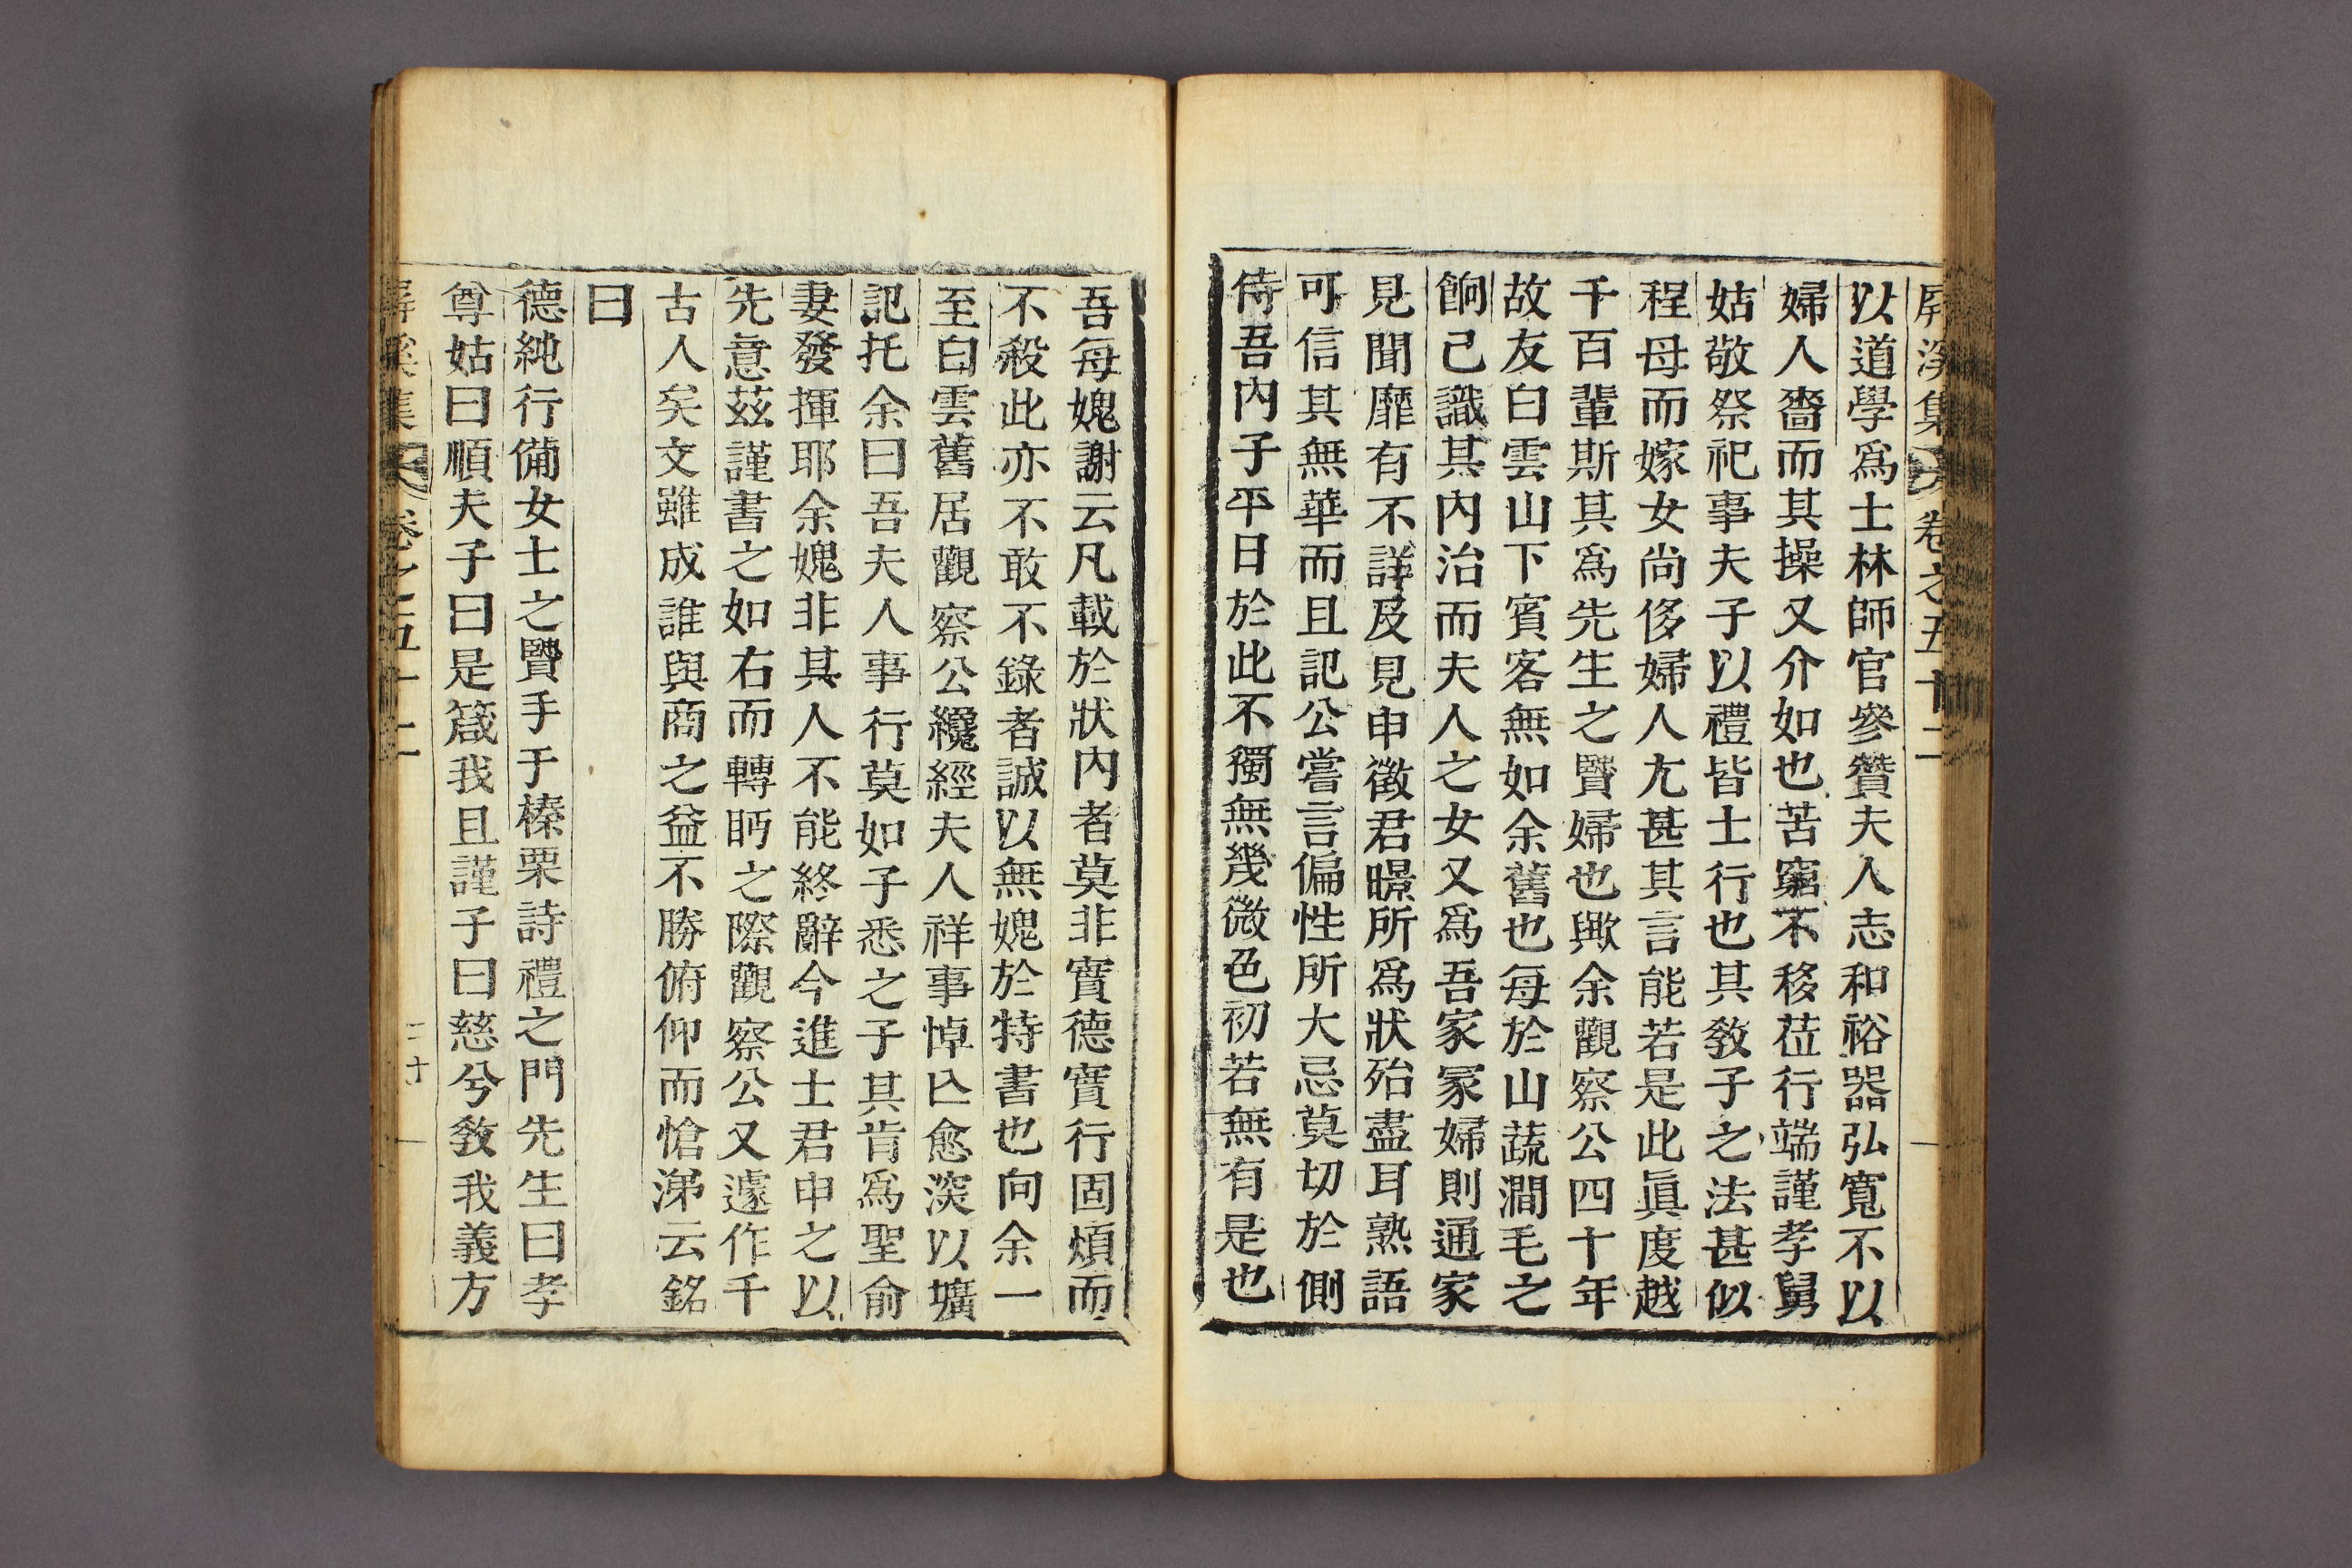 屏溪集 卷之五十二
以道學爲士林師官參贊夫人志和裕器弘寬不以
婦人嗇而其操又介如也苦窮不移莅行端謹孝舅
姑敬祭祀事夫子以禮皆士行也其敎子之法甚似
程母而嫁女尙侈婦人尢甚其言能若是此眞度越
千百輩斯其爲先生之賢婦也歟余觀察公四十年
故友白雲山下賓客無如余舊也每於山蔬澗毛之
餉已識其內治而夫人之女又爲吾家冢婦則通家
見聞靡有不詳及見申徵君暻所爲狀殆盡耳熟語
可信其無華而且記公嘗言偏性所大忌莫切於側
侍吾內子平日於此不獨無幾微色初若無有是也
吾每媿謝云凡載於狀內者莫非實德實行固煩而
不殺此亦不敢不錄者誠以無媿於特書也向余一
至白雲舊居觀察公纔經夫人祥事悼亾愈深以壙
記托余曰吾夫人事行莫如子悉之子其肯爲聖俞
妻發揮耶余媿非其人不能終辭今進士君申之以
先意茲謹書之如右而轉眄之際觀察公又遽作千
古人矣文雖成誰與商之益不勝俯仰而愴涕云銘
曰
德純行備女士之賢手于榛栗詩禮之門先生曰孝
尊姑曰順夫子曰是箴我且謹子曰慈兮敎我義方
屏溪集 卷之五十二 二十